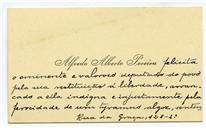 Alfredo Alberto Pereira felicita
o eminente e valoroso deputado do povo
pela sua restituição á liberdade, arran-
cado a ella indigna e injustamente pela
ferocidade de um tyranno algoz,
Rua da Graça, 128-2º